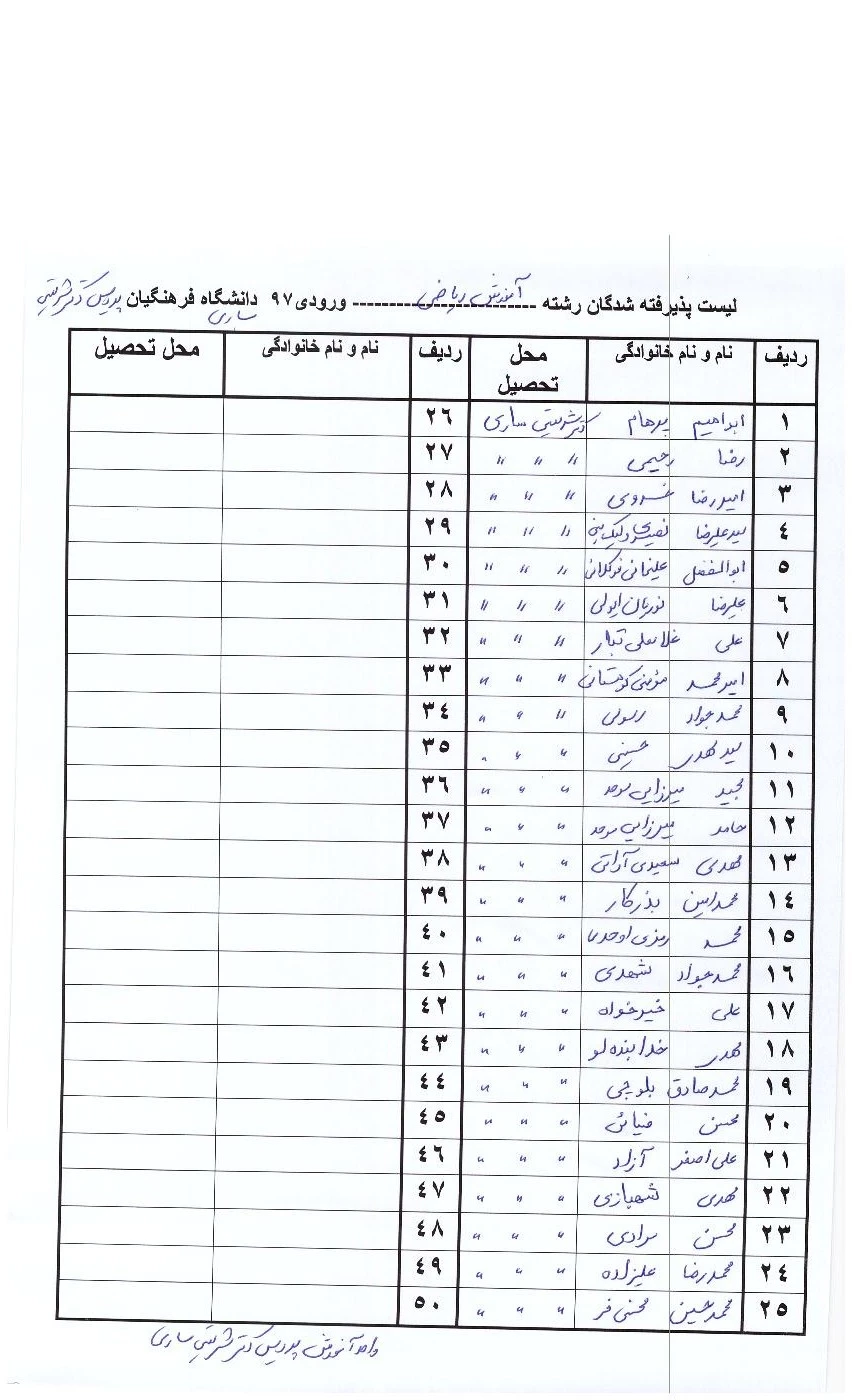 لیست پذیرفته شدگان رشته آموزش ریاضی ورودی ۹۷ دانشگاه فرهنگیان پردیس دکتر شریعتی
ساری
ردیف نام و نام خانوادگی محل تحصیل ردیف نام و نام خانوادگی محل تحصیل
۱ ابراهیم پرهام دکتر شریعتی ساری ۲۶
۲ رضا رحیمی " " " ۲۷
۳ امیررضا خسروی " " " ۲۸
٤ سید علیرضا " " " ۲۹
٥ ابوالفضل " " " ۳۰
٦ علیرضا نوریان " " " ۳۱
۷ علی غلامعلی تبار " " " ۳۲
۸ امیرمحمد مؤمنی کوهستانی " " " ۳۳
۹ محمدجواد رسولی " " " ۳٤
۱۰ سید مهدی حسینی " " " ۳٥
۱۱ مجید میرزایی موحد " " " ۳٦
۱۲ حامد میرزایی موحد " " " ۳۷
۱۳ مهدی سعیدی آرانی " " " ۳۸
۱٤ محمدامین بذرکار " " " ۳۹
۱٥ محمد رمزی اوحدی " " " ٤۰
۱٦ محمدجواد شهدی " " " ٤۱
۱۷ علی خیرخواه " " " ٤۲
۱۸ مهدی خدابنده لو " " " ٤۳
۱۹ محمدصادق بلوچی " " " ٤٤
۲۰ محسن ضیائی " " " ٤٥
۲۱ علی اصغر آزاد " " " ٤٦
۲۲ مهدی شهبازی " " " ٤۷
۲۳ محسن مرادی " " " ٤۸
۲٤ محمدرضا علیزاده " " " ٤۹
۲٥ محمدحسین محسنی فر " " " ٥۰
واحد آموزش پردیس دکتر شریعتی ساری